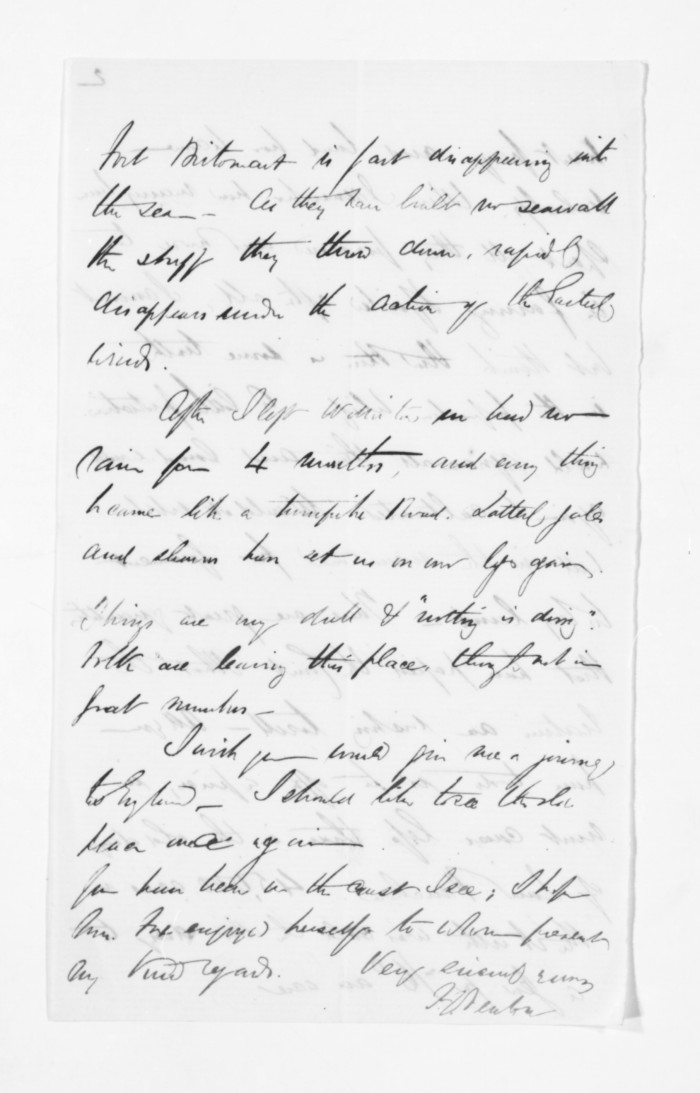 2
Fort Britomart is fast disappearing into
the sea — As they have built no seawall
the stuff they throw down, rapidly
disappears under the action of the Easterly
winds.
After I left Wellington we had no
rain for 4 months, and every thing
became like a turnpike Road. Latterly gales
and showers have set us on our legs again.
Things are very dull & "nothing is doing".
Folk are leaving this place, though not in
great numbers —
I wish you would give me a journey
to England — I should like to see the old
place once again
You have been on the coast I see; I hope
Mrs. enjoyed herself to whom present
my kind regards. Very sincerely yours